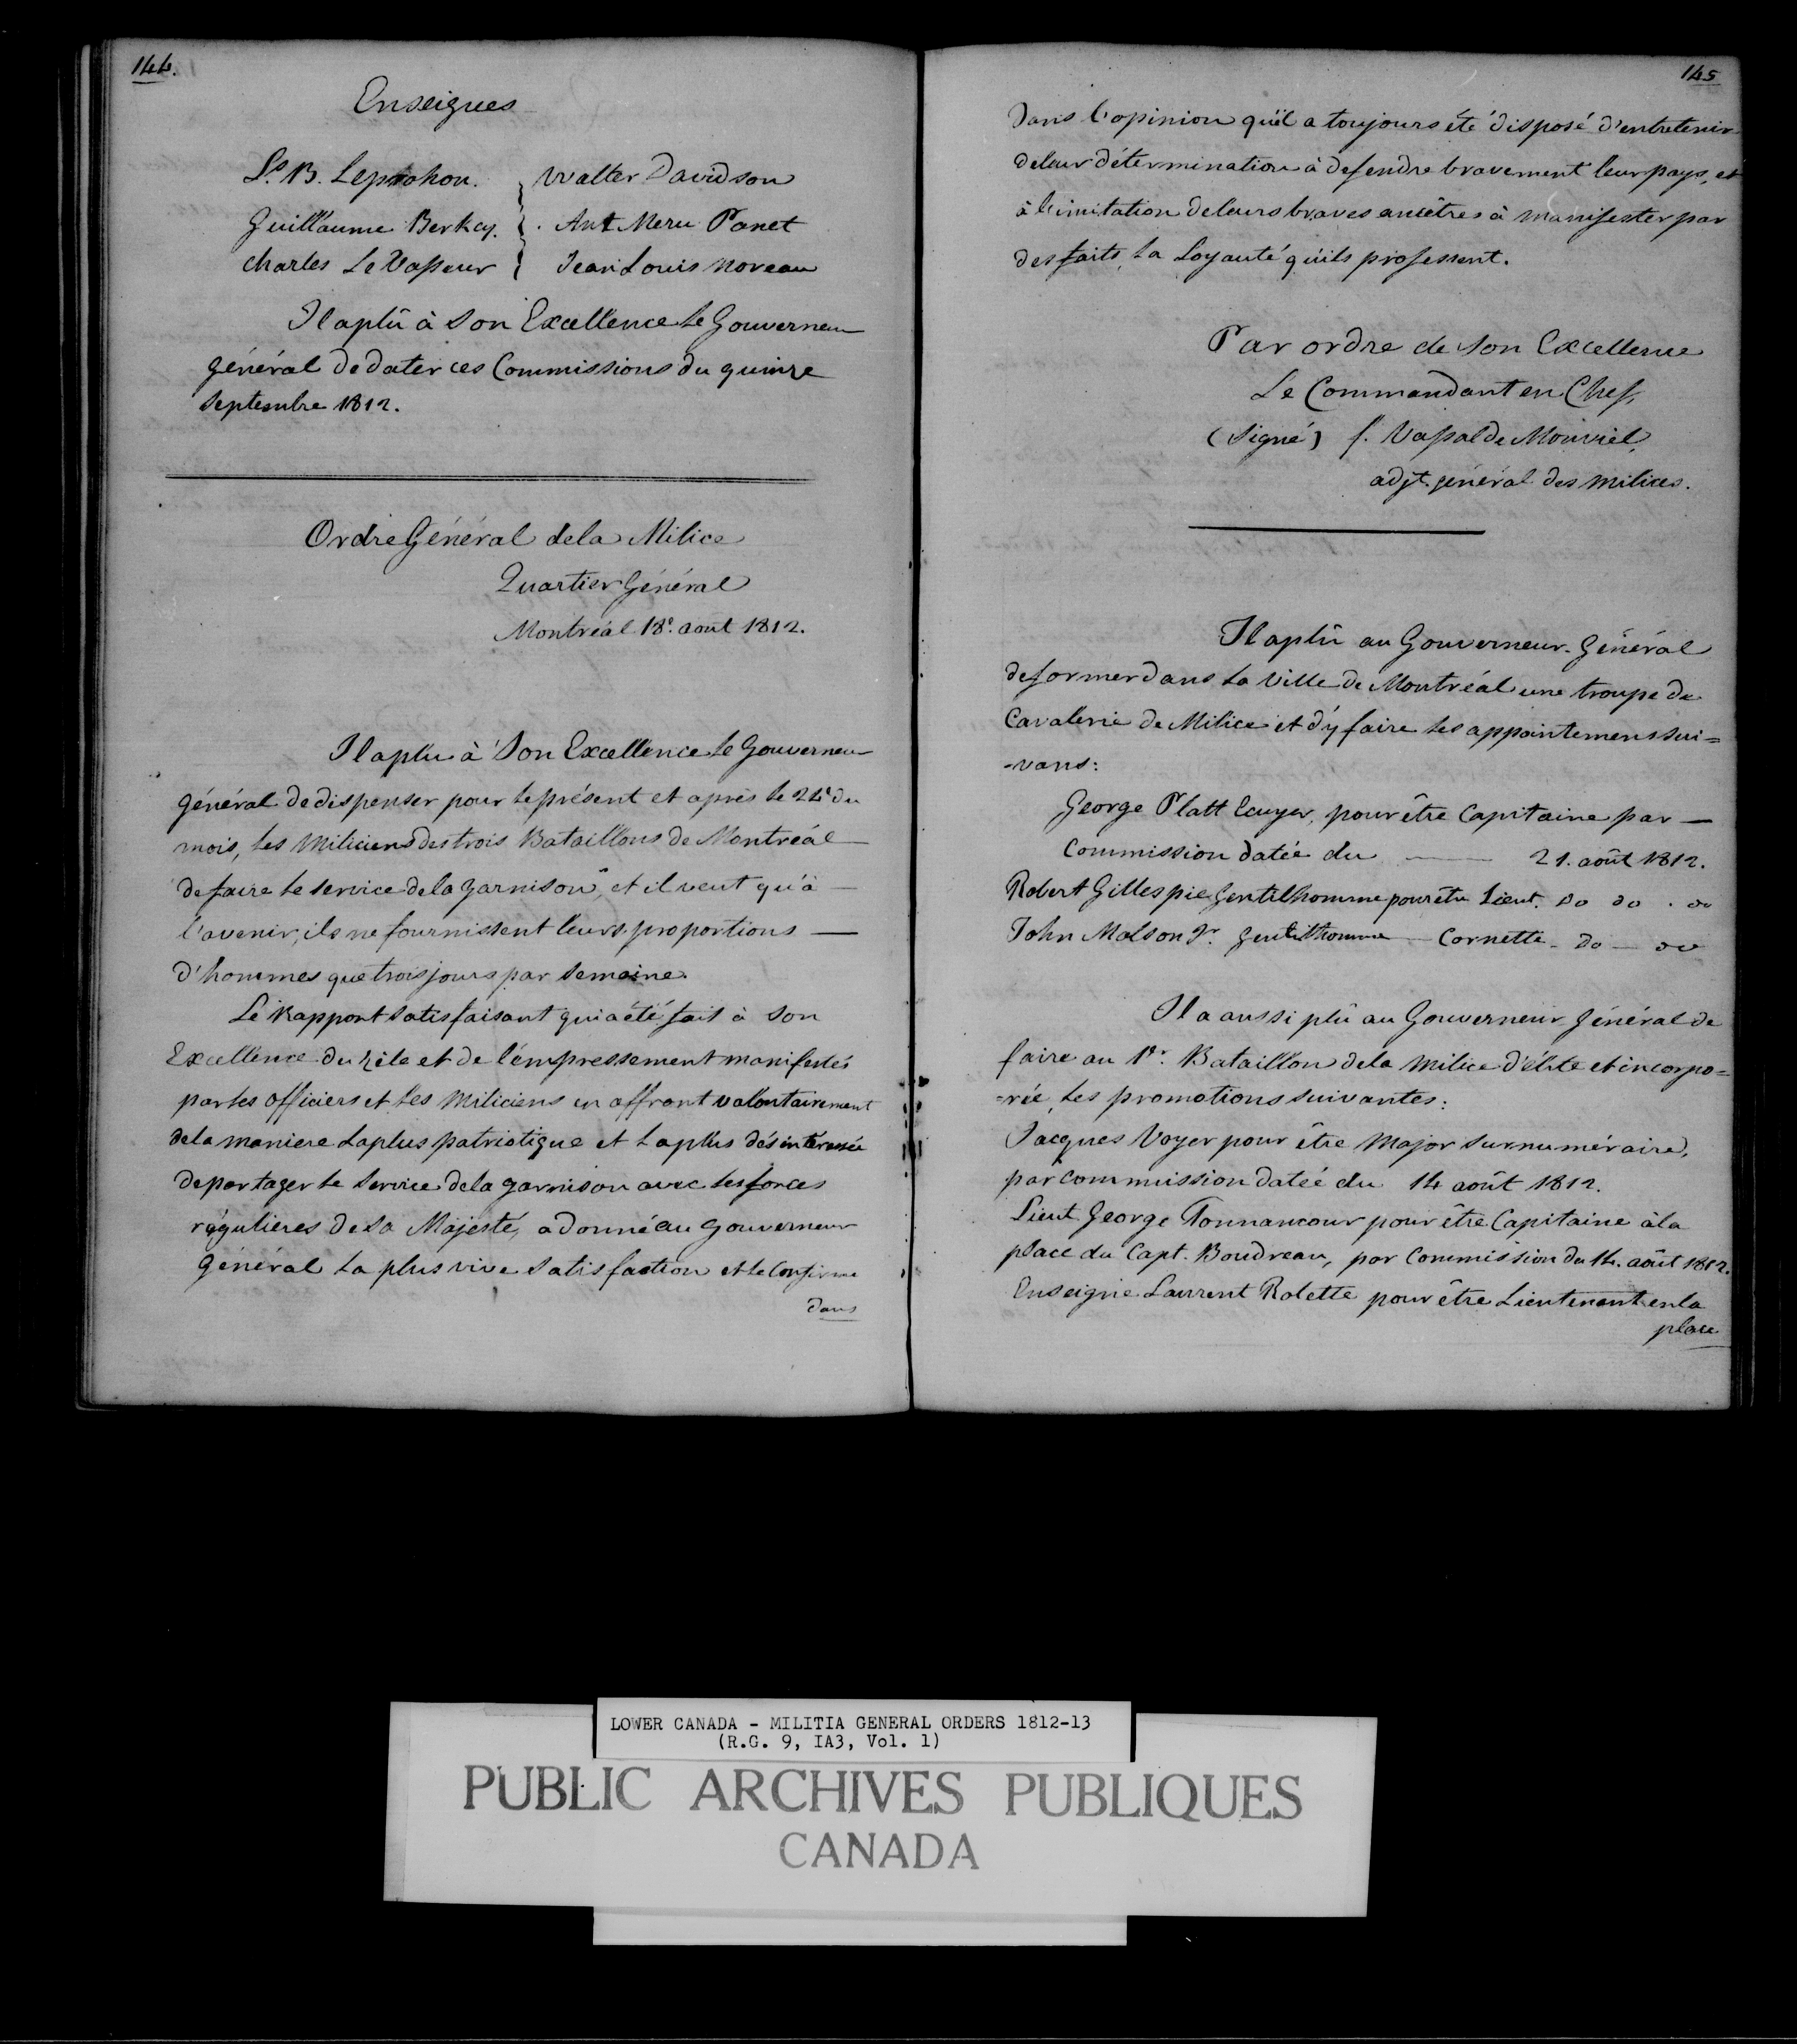 144.
Enseignes
Ls. B. Leprohon. } Walter Davidson
Guillaume Berkcy. } Ant Meru Panet
Charles LeVasseur } Jean Louis Noreau
Il a plû à Son Excellence le Gouverneur
général de dater ces Commissions du quinze
Septembre 1812.
Ordre Général de la Milice
Quartier Général
Montréal 18e. août 1812.
Il a plu à Son Excellence le Gouverneur
général de dispenser pour le présent et après le 24e du
mois, les Miliciens des trois Bataillons de Montréal
de faire le service de la garnison, et il veut qu'à
l'avenir, ils ne fournissent leurs proportions
d'hommes que trois jours par semaine.
Le Rapport satisfaisant qui a été fait à Son
Excellence du zèle et de l'empressement manifestés
par les officiers et les Miliciens en offrant volontairement
de la maniere la plus patriotique et la plus désinteressée
de partager le service de la garnison avec les forces
régulieres de Sa Majesté, a donné au gouverneur
Général la plus vive satisfaction et le confirme
dans
145
Dans l'opinion qu'il a toujours été disposé d'entretenir
de leur détermination à defendre bravement leur pays, et
à l'imitation de leurs braves ancêtres à manifester par
des faits, la Loyauté qu'ils professent.
Par ordre de Son Excellence
Le Commandant en Chef,
(Signé) f. Vassal de Monviel,
adjt. général des milices.
Il a plû au Gouverneur Général
de former dans la Ville de Montréal une troupe de
Cavalerie de Milice et d'y faire les appointemens sui=
-vans:
George Platt Ecuyer, pour être Capitaine par —
Commission datée du —— 21. août 1812.
Robert Gillespie Gentilhomme pour être Lieut. Do Do . Do
John Molson Jr. gentilhomme — Cornette - Do — Do
Il a aussi plû au Gouverneur Général de
faire au 1er. Bataillon de la Milice d'élite et incorpo=
=rée, les promotions suivantes:
Jacques Voyer pour être Major surnuméraire,
par Commission datée du 14 août 1812.
Lieut George Tonnancour pour être Capitaine à la
place du Capt. Boudreau, par Commission du 14. août 1812.
Enseigne Laurent Rolette pour être Lieutenant en la
place
LOWER CANADA - MILITIA GENERAL ORDERS 1812-13
(R.G. 9, IA3, Vol. 1)
PUBLIC ARCHIVES PUBLIQUES
CANADA